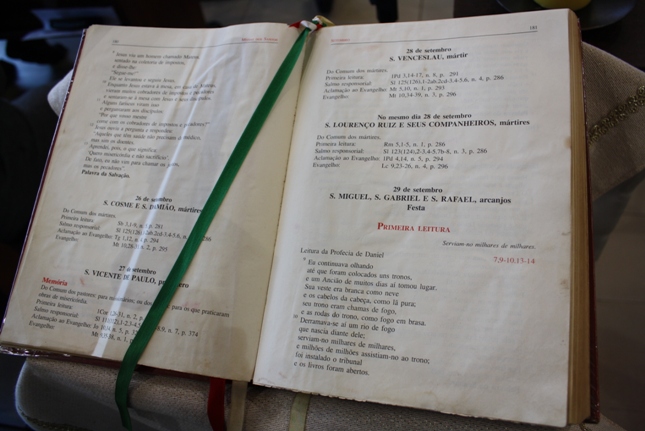 Jesus viu um homem chamado Mateus,
sentado na coletoria de impostos,
e disse-lhe:
"Segue-me!"
Ele se levantou e seguiu Jesus.
Enquanto Jesus estava à mesa, em casa de Mateus,
vieram muitos cobradores de impostos e pecadores
e sentaram-se à mesa com Jesus e seus discípulos.
Alguns fariseus viram isso
e perguntaram aos discípulos:
"Por que vosso mestre
come com os cobradores de impostos e pecadores?"
Jesus ouviu a pergunta e respondeu:
"Aqueles que têm saúde não precisam de médico,
mas sim os doentes.
Aprendei, pois, o que significa:
'Quero misericórdia e não sacrifício'.
De fato, eu não vim para chamar os justos,
mas os pecadores".
Palavra da Salvação.
26 de setembro
S. COSME E S. DAMIÃO, mártires
Do Comum dos mártires:
Primeira leitura: Sb 3,1-9, n. p. 281
Salmo responsorial: Sl p. 286
Aclamação ao Evangelho: Tg 1,12, n. p. 294
Evangelho: Mt 10,28 n. 2, p. 295
27 de setembro
S. VICENTE DE PAULO,
Memória
Do Comum dos pastores: para missionários; ou dos para os que praticaram
obras de misericórdia.
Primeira leitura: 1Cor n. 2, p.
Salmo responsorial: n. 7, p. 374
Aclamação ao Evangelho: Jo
Evangelho: Mt n. 1, p.
183
28 de setembro
S. VENCESLAU, mártir
Do Comum dos mártires:
Primeira leitura: 1Pd 3,14-17, n. 8, p. 291
Salmo responsorial: Sl 125(126),1-2ab.2cd-3.4-5.6, n. 4, p. 286
Aclamação ao Evangelho: Mt 5,10, n. 1, p. 293
Evangelho: Mt 10,34-39, n. 3, p. 296
No mesmo dia 28 de setembro
S. LOURENÇO RUIZ E SEUS COMPANHEIROS, mártires
Do Comum dos mártires:
Primeira leitura: Rm 5,1-5, n. 1, p. 286
Salmo responsorial: Sl 123(124),2-3.4-5.7b-8, n. 3, p. 286
Aclamação ao Evangelho: 1Pd 4,14, n. 5, p. 294
Evangelho: Lc 9,23-26, n. 4, p. 296
29 de setembro
S. MIGUEL, S. GABRIEL E S. RAFAEL, arcanjos
Festa
PRIMEIRA LEITURA
Serviam-no milhares de milhares.
Leitura da Profecia de Daniel 7,9-10.13-14
9 Eu continuava olhando
até que foram colocados uns tronos,
e um Ancião de muitos dias aí tomou lugar.
Sua veste era branca como neve
e os cabelos da cabeça, como lã pura;
seu trono eram chamas de fogo,
e as rodas do trono, como fogo em brasa.
10 Derramava-se aí um rio de fogo
que nascia diante dele;
serviam-no milhares de milhares,
e milhões de milhões assistiam-no ao trono;
foi instalado o tribunal
e os livros foram abertos.